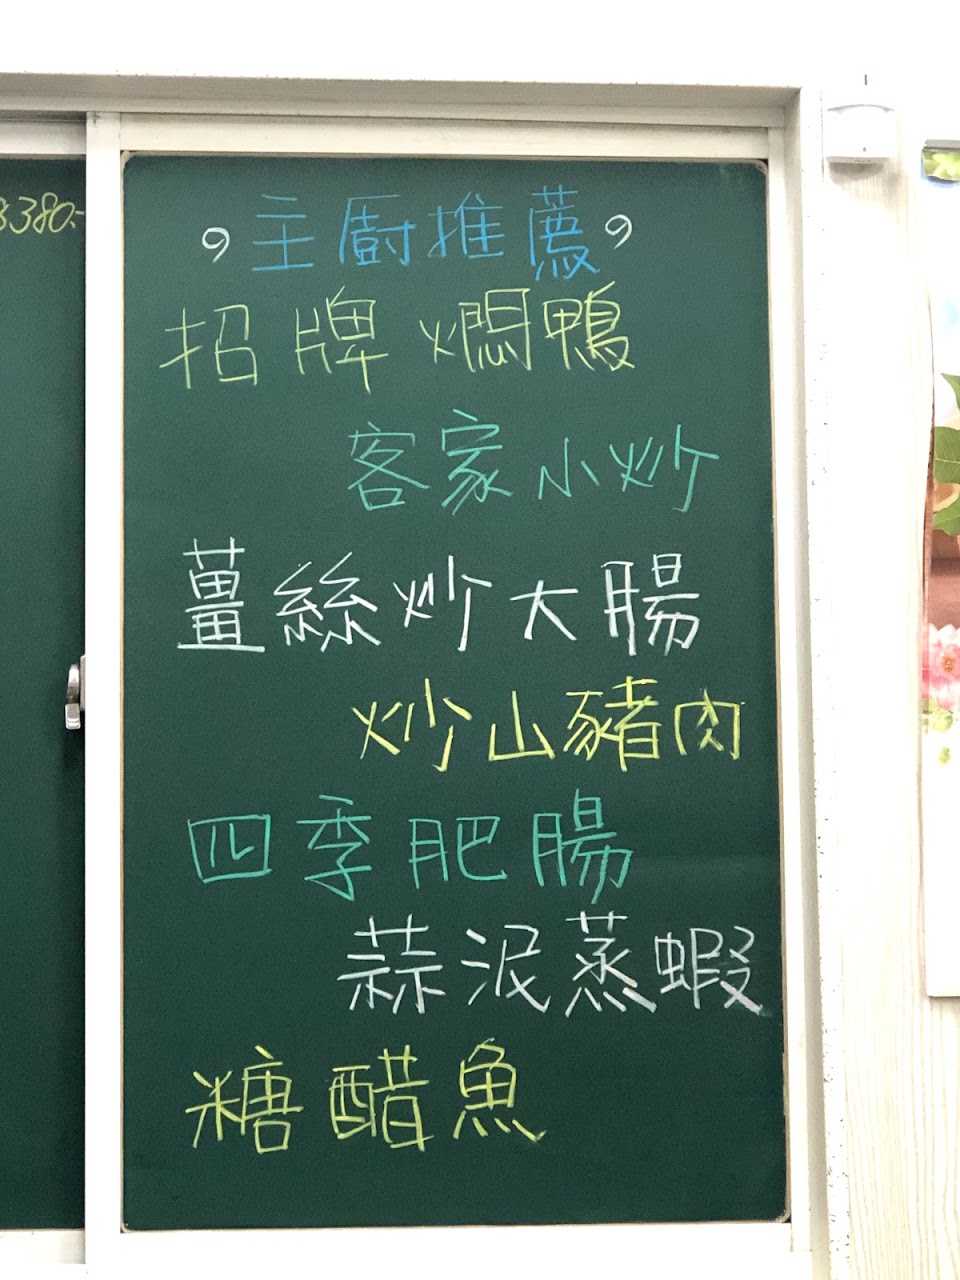 380.-
主廚推薦
招牌燜鴨
客家小炒
薑絲炒大腸
炒山豬肉
四季肥腸
蒜泥蒸蝦
糖醋魚